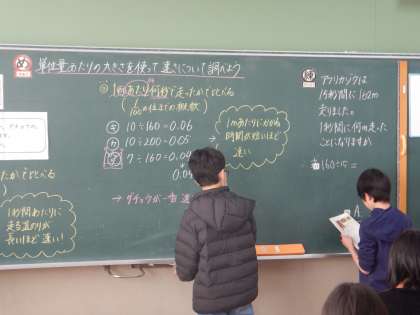 め
単位量あたりの大きさを使って速さについて調べよう
1mあたり何秒で走ったかで比べる
(1/100の位までの概数)
10÷160=0.06
10÷200=0.05
7÷160=0.04
1mあたりにかかる
時間が短いほど
速い
→ダチョウが一番速
たかで比べる
1秒間あたりに
走る道のりが
長いほど速い!
練
アフリカゾウは
15秒間に162m
走りました。
1秒間に何m走った
ことになりますか
160÷15=
A